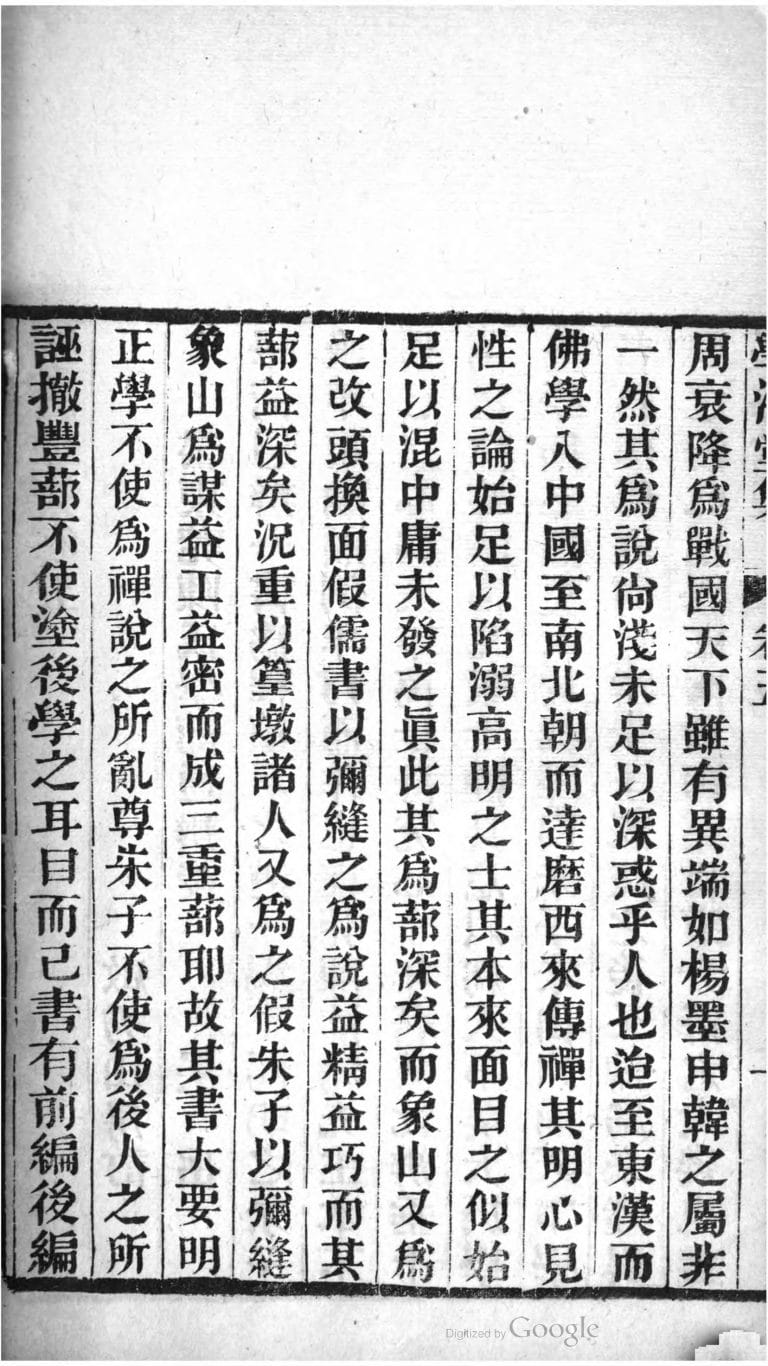 周衰降爲戰國天下雖有異端如楊墨申韓之屬非
一然其爲說尙淺未足以深惑乎人也迨至東漢而
佛學入中國至南北朝而達磨西來傳禪其明心見
性之論始足以陷溺高明之士其本來面目之似始
足以混中庸未發之眞此其爲蔀深矣而象山又爲
之改頭換面假儒書以彌縫之爲說益精益巧而其
蔀益深矣況重以篁墩諸人又爲之假朱子以彌縫
象山爲謀益工益密而成三重蔀耶故其書大要明
正學不使爲禪說之所亂尊朱子不使爲後人之所
誣撤豐蔀不使塗後學之耳目而已書有前編後編
Digitized by Google